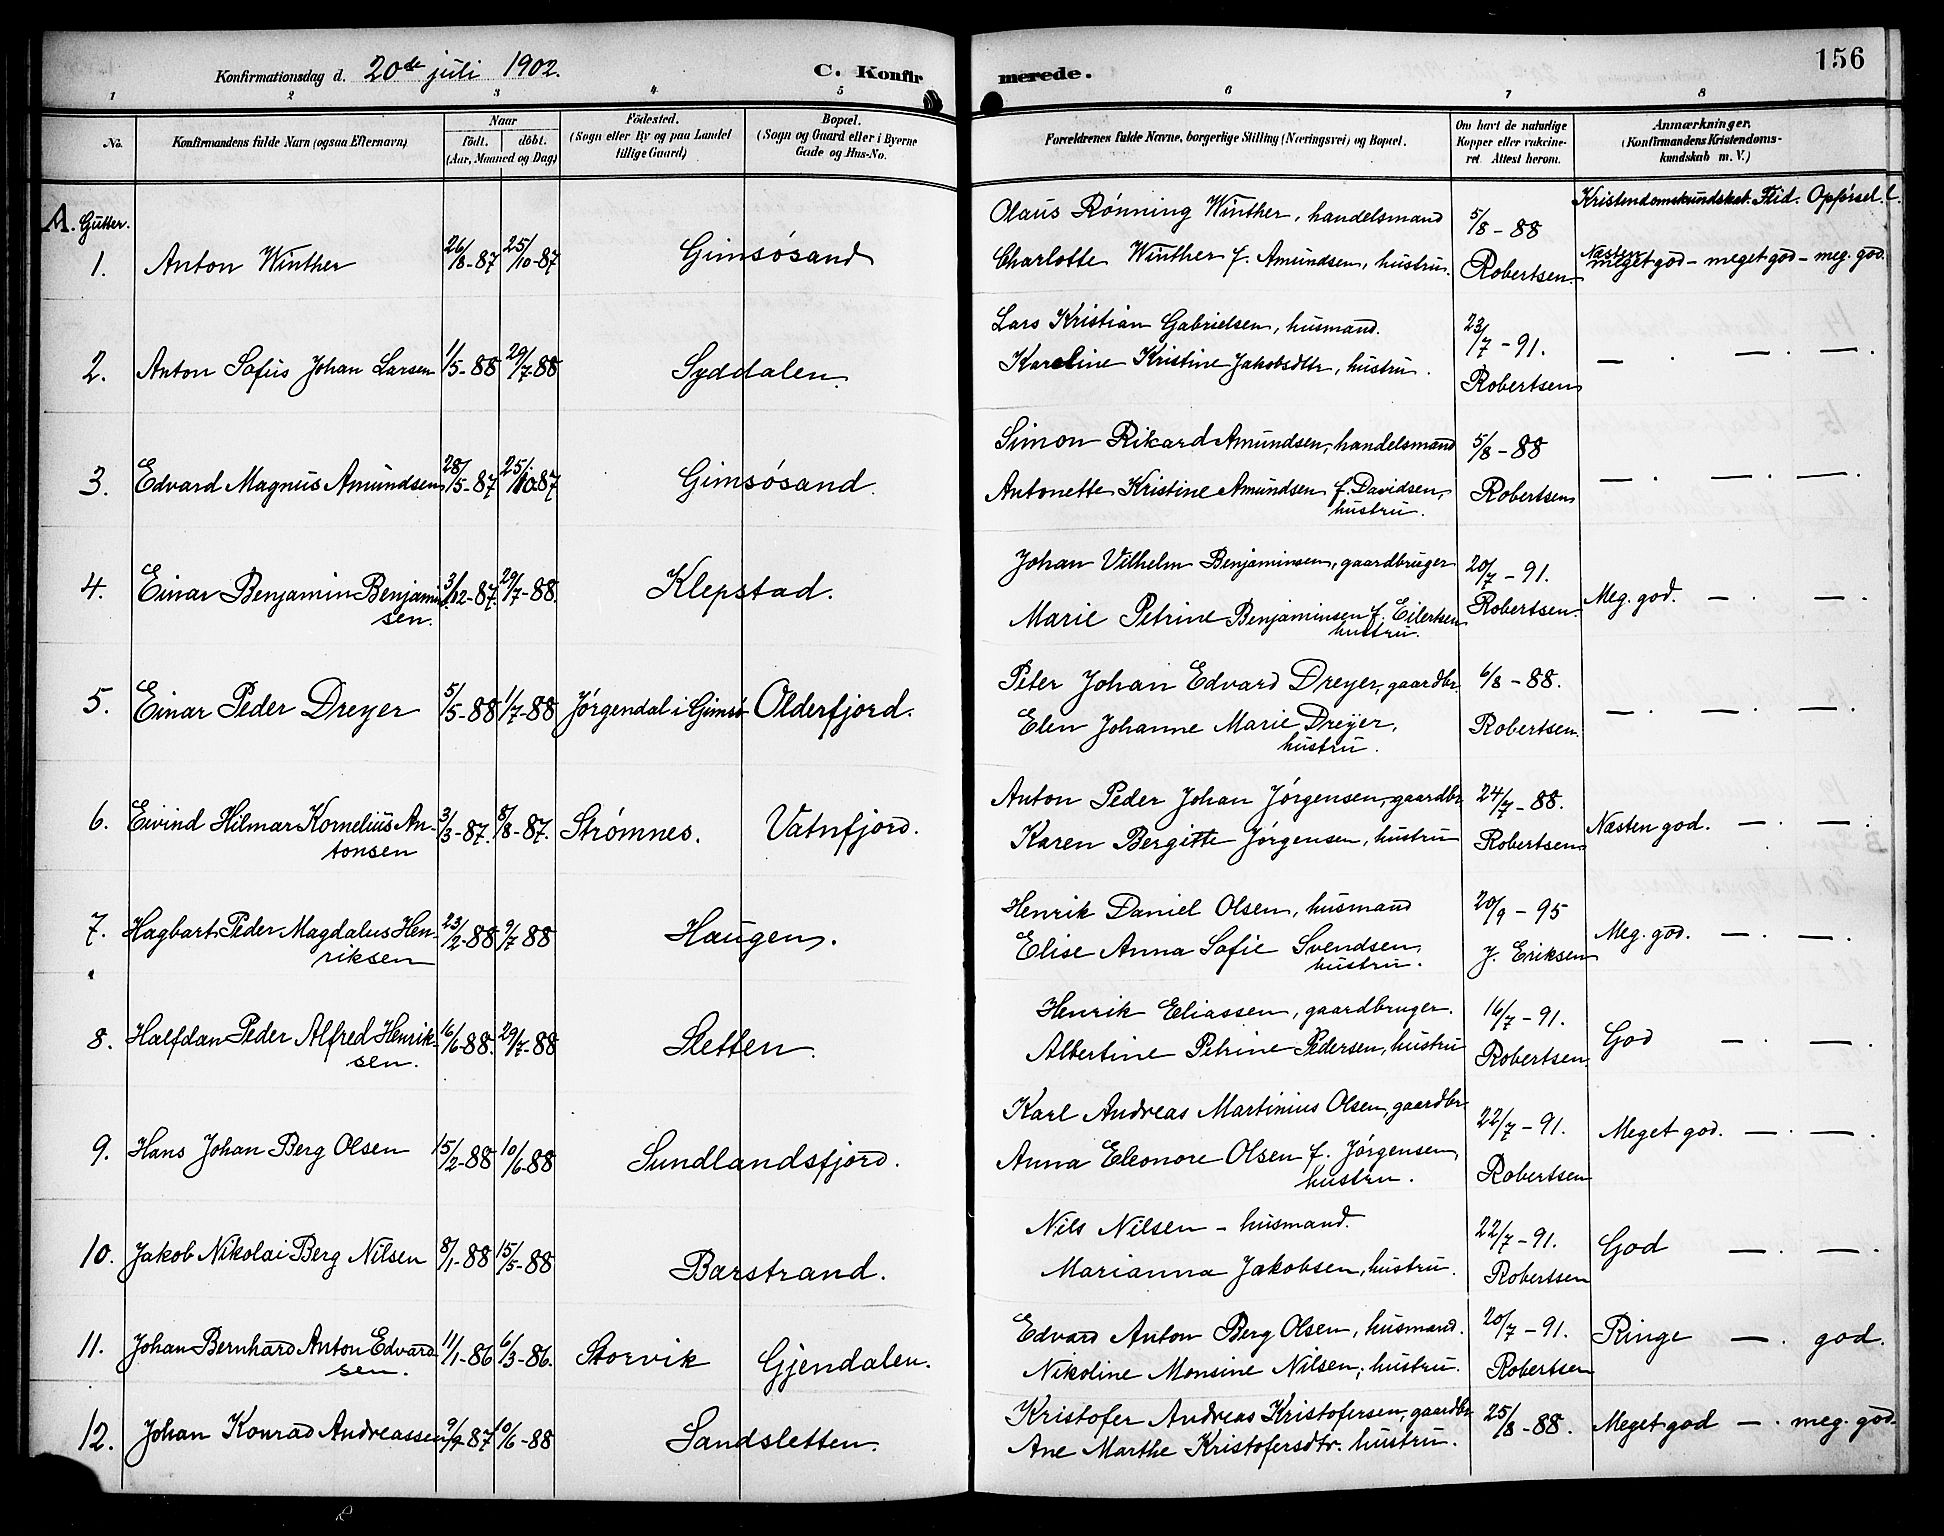 156
Konfirmationsdag d. 20de juli 1902.
C. Konfirmerede.
1 2 3 4 5 6 7 8
No.
Konfirmandens fulde Navn (ogsaa Efternavn)
Naar
født. døbt.
(Aar, Maaned og Dag)
Fødested.
(Sogn eller By og paa Landet
tillige Gaard)
Bopæl.
(Sogn og Gaard eller i Byerne
Gade og Hus-No.
Forældrenes fulde Navne, borgerlige Stilling (Næringsvei) og Bopæl.
Om havt de naturlige
Kopper eller vakcine-
ret. Attest herom.
Anmærkninger.
(Konfirmandens Kristendoms-
kundskab m. V.)
A. Gutter.
Kristendomskundskab. Flid. Opførsel.
1. Anton Winther 26/8-87 25/10-87 Gimsøsand
Olaus Rønning Winther, handelsmand
Charlotte Winther f. Amundsen, hustru.
5/8-88
Robertsen.
Næsten
meget god - meget god - meg. god.
2. Anton Sofus Johan Larsen 1/5-88 29/7-88 Syddalen.
Lars Kristian Gabrielsen, husmand.
Karoline Kristine Jakobsdtr, hustru.
23/7-91.
Robertsen
— . — . — .
3. Edvard Magnus Amundsen 28/5-87 25/10-87 Gimsøsand.
Simon Rikard Amundsen, handelsmand
Antonette Kristine Amundsen f. Davidsen,
hustru.
5/8-88
Robertsen
— . — . — .
4. Einar Benjamin Benjamin
sen. 3/12-87. 29/7-88. Klepstad.
Johan Vilhelm Benjaminsen, gaardbruger
Marie Petrine Benjaminsen f. Eilertsen
hustru.
20/7-91.
Robertsen.
Meg. god. — . — .
5. Einar Peder Dreyer 5/5-88 1/7-88 Jørgendal i Gimsø Olderfjord.
Peter Johan Edvard Dreyer, gaardbr.
Elen Johanne Marie Dreyer,
hustru.
6/8-88.
Robertsen.
— . — . — .
6. Eivind Hilmar Kornelius An-
tonsen 3/3-87. 8/8-87. Strømnes. Vatnfjord.
Anton Peder Johan Jørgensen, gaardbr
Karen Bergitte Jørgensen, hustru
24/7-88.
Robertsen
Næsten god. — . — .
7. Hagbart Peder Magdalus Hen-
riksen 23/2-88 9/7-88 Haugen.
Henrik Daniel Olsen, husmand
Elise Anna Sofie Svendsen,
hustru.
20/9-95
J. Eriksen
Meg. god. — . — .
8. Halfdan Peder Alfred Henrik-
sen. 16/6-88. 29/7-88 Sletten.
Henrik Eliassen, gaardbruger.
Albertine Petrine Pedersen, hustru
16/7-91.
Robertsen.
God — . — .
9. Hans Johan Berg Olsen 15/2-88 10/6-88 Sundlandsfjord.
Karl Andreas Martinius Olsen, gaardbr
Anna Eleonore Olsen f. Jørgensen,
hustru.
22/7-91.
Robertsen
Meget god. — . — .
10. Jakob Nikolai Berg Nilsen 8/1-88 15/5-88 Barstrand.
Nils Nilsen - husmand.
Marianna Jakobsen, hustru.
22/7-91.
Robertsen
God — . — .
11. Johan Bernhard Anton Edvard
sen. 11/1-86 6/3-86. Storvik Gjendalen.
Edvard Anton Berg Olsen, husmand.
Nikoline Monsine Nilsen, hustru.
20/7-91.
Robertsen
Ringe — . god.
12. Johan Konrad Andreassen 9/9-87 10/6-88 Sandsletten.
Kristofer Andreas Kristofersen, gaardbr
Ane Marthe Kristofersdtr. hustru.
25/8-88.
Meget god — . meg. god.